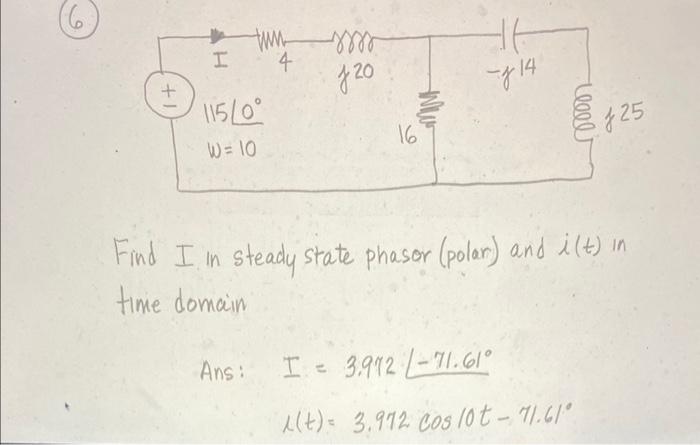 6
I
4
j20
-j14
+
-
115∠0°
W=10
16
j25
Find I in steady state phasor (polar) and i(t) in
time domain
Ans: I = 3.972 ∠-71.61°
i(t) = 3.972 cos 10t - 71.61°